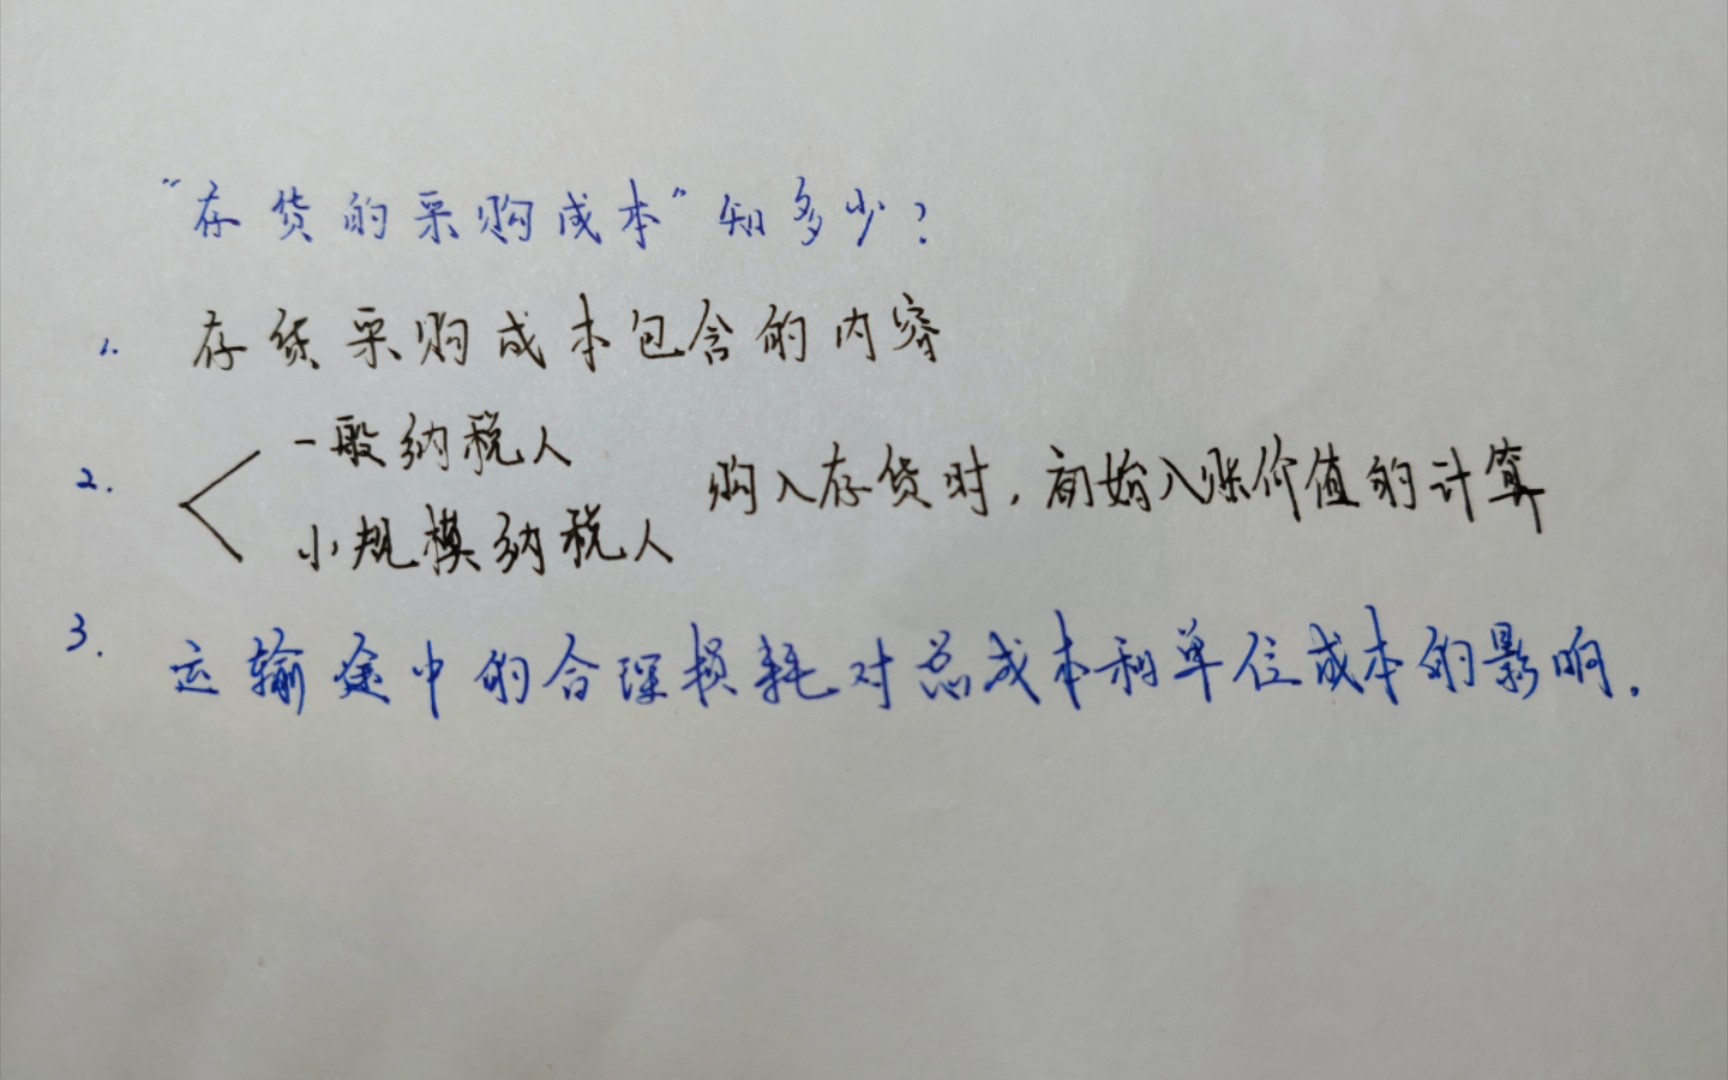 “存货的采购成本”知多少?
1. 存货采购成本包含的内容
2. 一般纳税人
小规模纳税人
购入存货时,初始入账价值的计算
3. 运输途中的合理损耗对总成本和单位成本的影响.